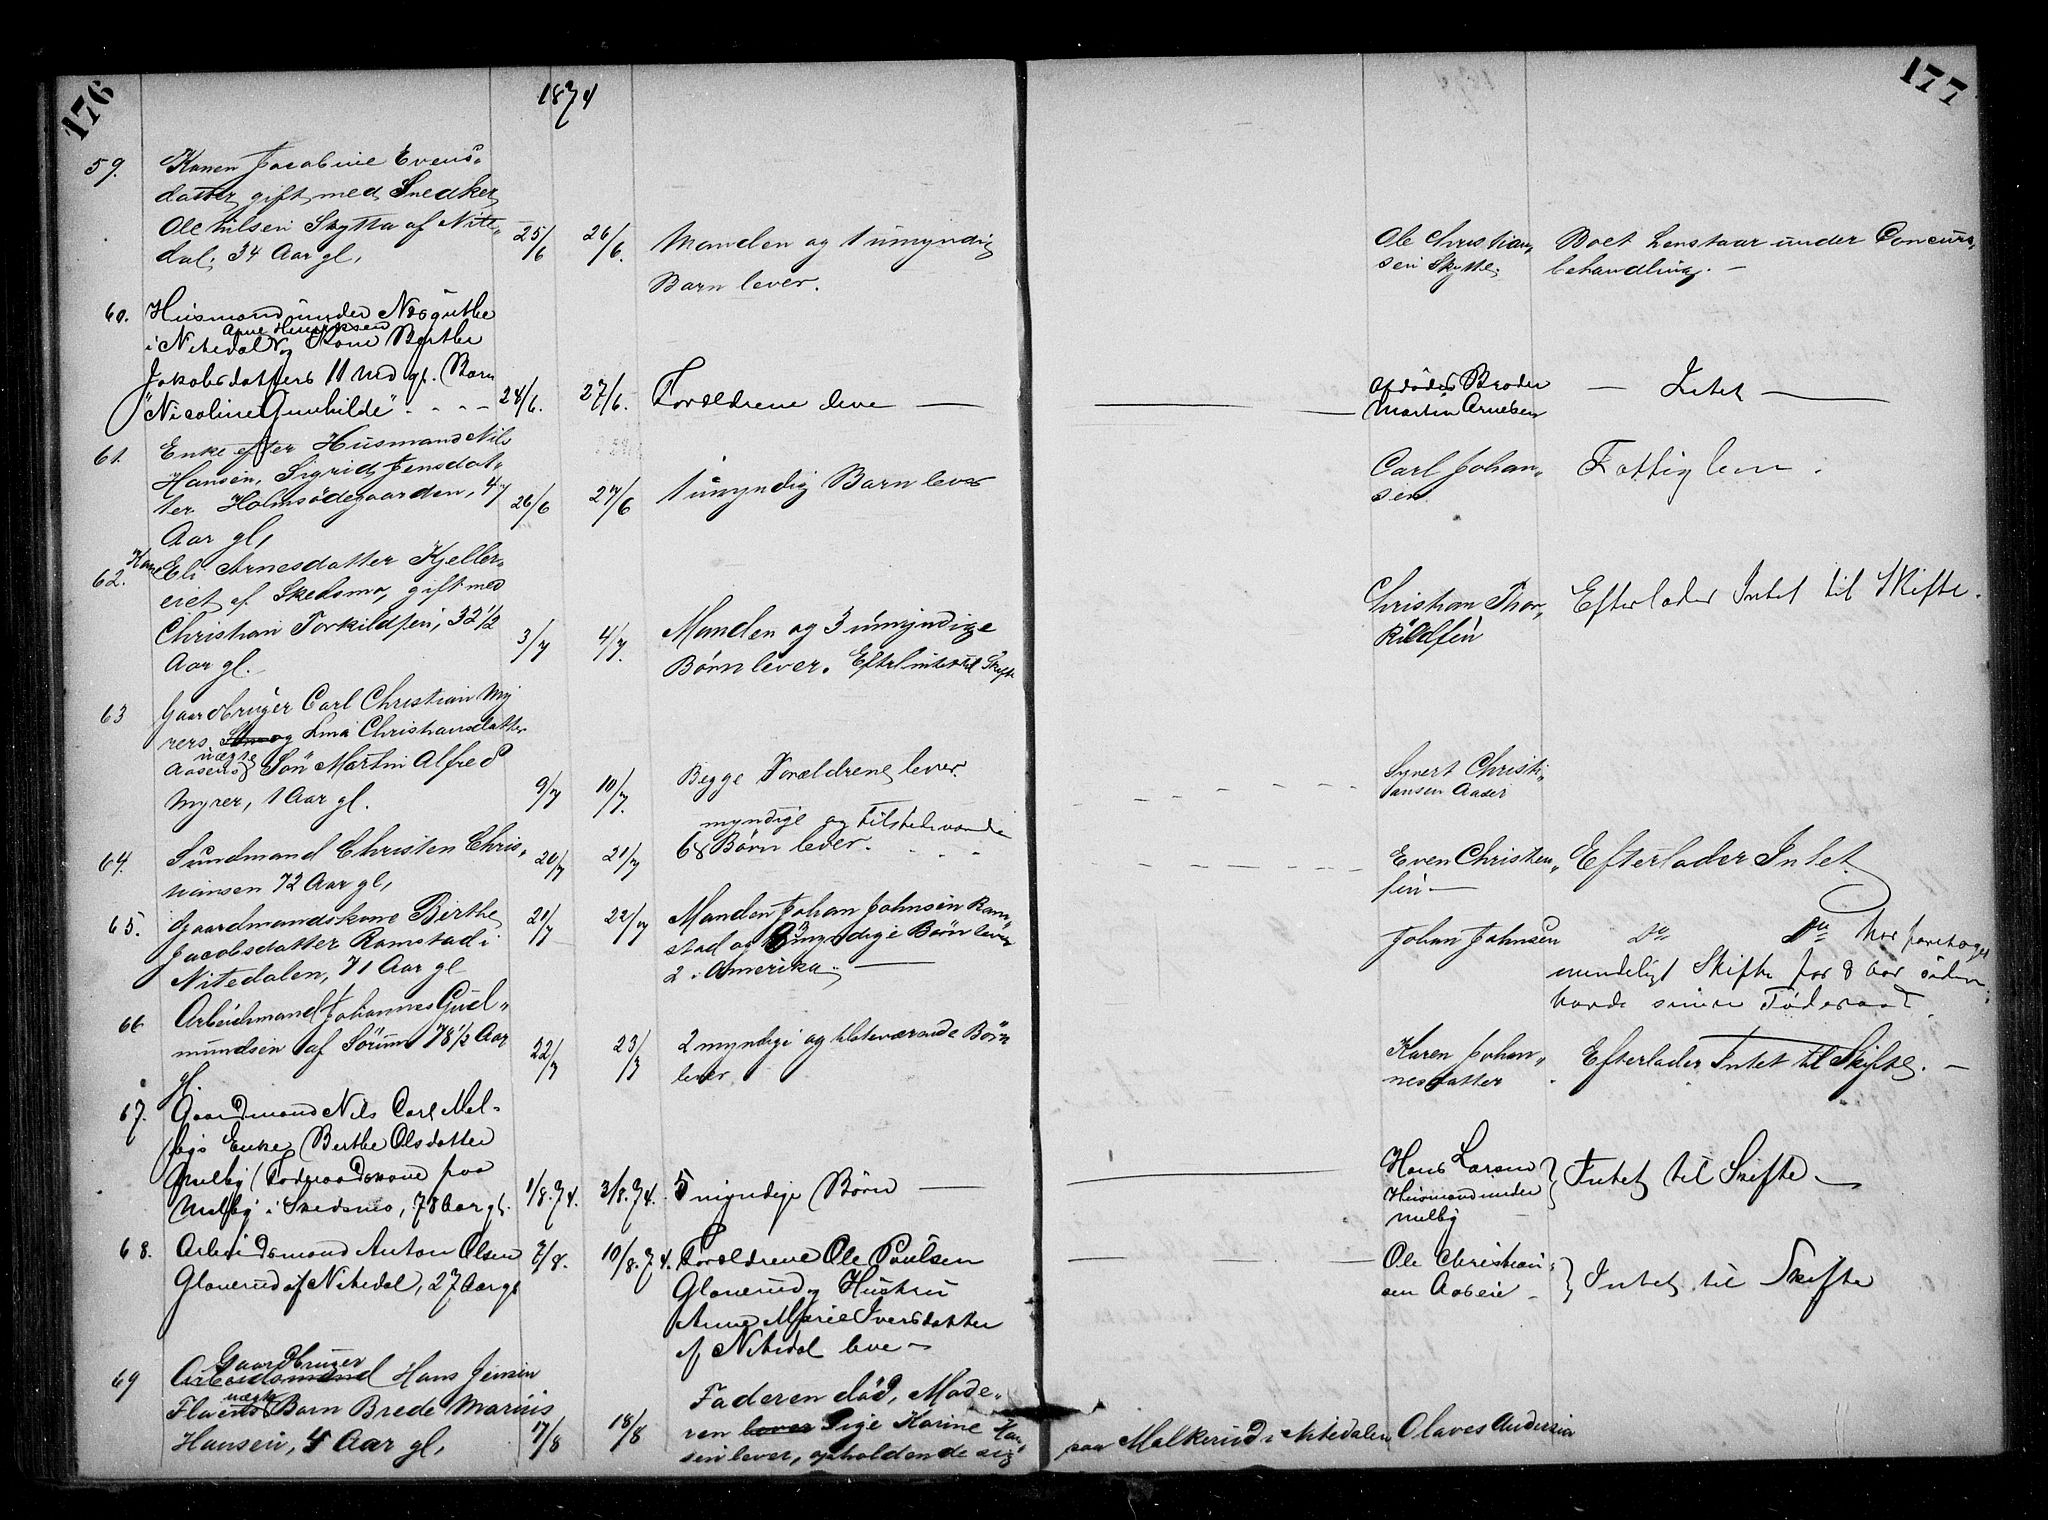 176
177
1874
59.
Konen Jacobine Evens-
datter gift med Snedker
Ole Nilsen Skytta af Nite-
dal, 34 Aar gl,
25/6
26/6.
Manden og 1 umyndig
Barn lever.
Ole Christian-
sen Skytte.
Boet henstaar under Concurs-
behandling. —
60.
Husmand under
Arne Henriksen
i Nitedal og Kone Berthe
Jakobsdatters 11 Md gl. Barn
"Nicoline Gunhilde" - - -
24/6.
27/6.
Forældrene leve —
Afdødes Broder
Martin Arnesen
— Intet —
61.
Enke efter Husmand Nils
Hansen, Sigrid Jensdat-
ter Holmsödegaarden, 47
Aar gl,
26/6
27/6
1 umyndig Barn lever
Carl Johan-
sen
Fattiglem.
62.
Kone
Eli Arnesdatter Kjeller-
eiet af Skedsmo, gift med
Christian Torkildsen, 32 1/2
Aar gl.
3/7
4/7.
Manden og 3 umyndige
Børn lever. Efterl intet til Skifte
Christian Thor-
kildsen
Efterlader Intet til Skifte.
63
Gaardbruger Carl Christian My
rers og Lina Christiansdatter
uægte
Aasens Sön Martin Alfred
Myrer, 1 Aar gl.
9/7
10/7.
Begge Forældrene lever.
Syvert Christi-
ansen Aaser
64.
Sundmand Christen Chris-
tiansen 72 Aar gl,
20/7
21/7
myndige og tilstedeværende
6 Børn lever.
Even Christen-
sen —
Efterlader Intet
65.
Gaardmandskone Birthe
Jacobsdatter Ramstad i
Nitedalen, 71 Aar gl
21/7
22/7
Manden Johan Johnsen Ram-
stad og myndige Børn lever
2 i Amerika. —
Johan Johnsen
Do Do har foretaget
mindeligt Skifte for 8 Aar siden
havde Föderaad.
66
Arbeidsmand Johannes Gud-
mundsen af Sörum 78 1/2 Aar
gl.
22/7
23/7
2 myndige og tilsteværende Börn
lever
Karen Johan-
nesdatter
Efterlader Intet til Skifte. —
67.
Gaardmand Nils Carl Mel-
bys Enke Berthe Olsdatter
Melby (Födraadskone paa
Melby i Skedsmo, 78 Aar gl.
1/8.74.
3/8.74.
5 myndige Børn —
Hans Larsen
Husmand under
Melby
Intet til Skifte —
68.
Arbeidsmand Anton Olsen
Glanerud af Nitedal, 27 Aar gl
7/8.
10/8.74.
Forældrene Ole Paulsen
Glanerud og Hustru
Anne Marie Iversdatter
af Nitedal leve —
Ole Christian-
sen Aaseie —
Intet til Skifte
69
Gaardbruger
Arbeidsmand Hans Jensen
uægte
Flaens Barn Brede Marius
Hansen, 4 Aar gl,
17/8
18/8
Faderen död, Mode-
ren lever Pige Karine Han-
sen lever, opholdende sig
paa Melkerud i Nitedalen
Olaves Andersen